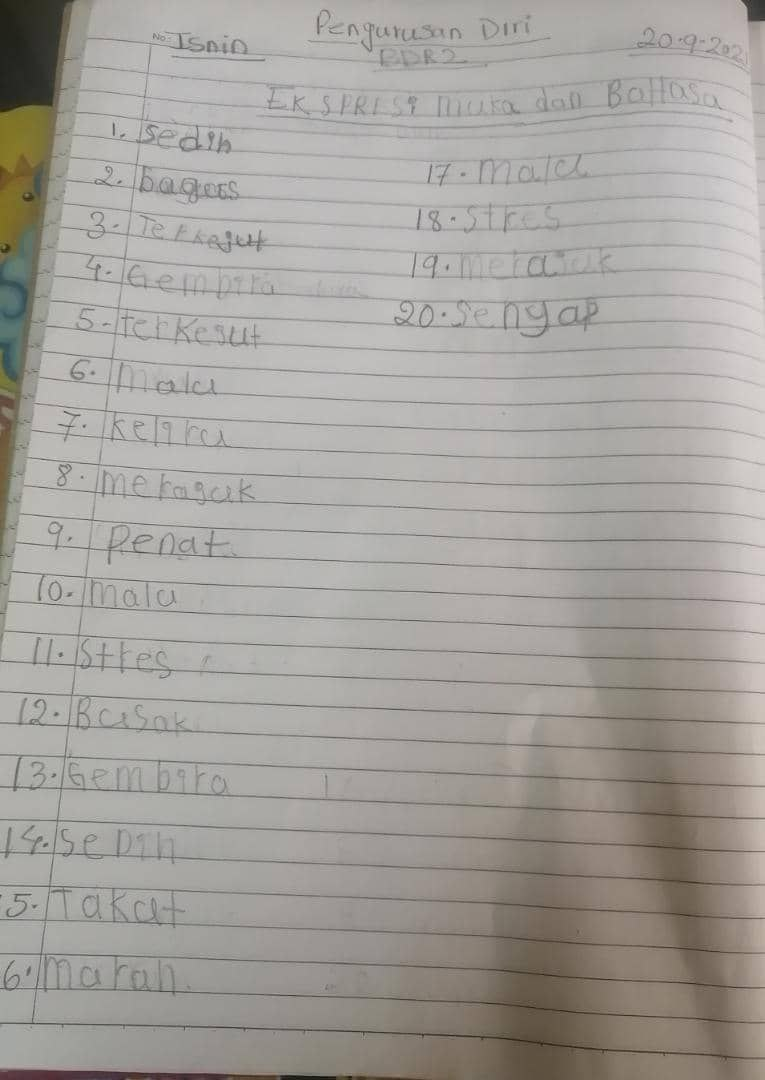 No: Isnin
Pengurusan Diri
20-9-202
PDPR2
EKSPRESi muka dan BaHasa
1. Sedih
2. bagus
3. Terkejut
4. Gembira
5. terkejut
6. malu
7. keliru
8. merajuk
9. Penat
10. malu
11. Stres
12. Busok
13. Gembira
14. SeDih
5. Takut
6. marah.
17. malu
18. Stres
19. merajuk
20. Senyap